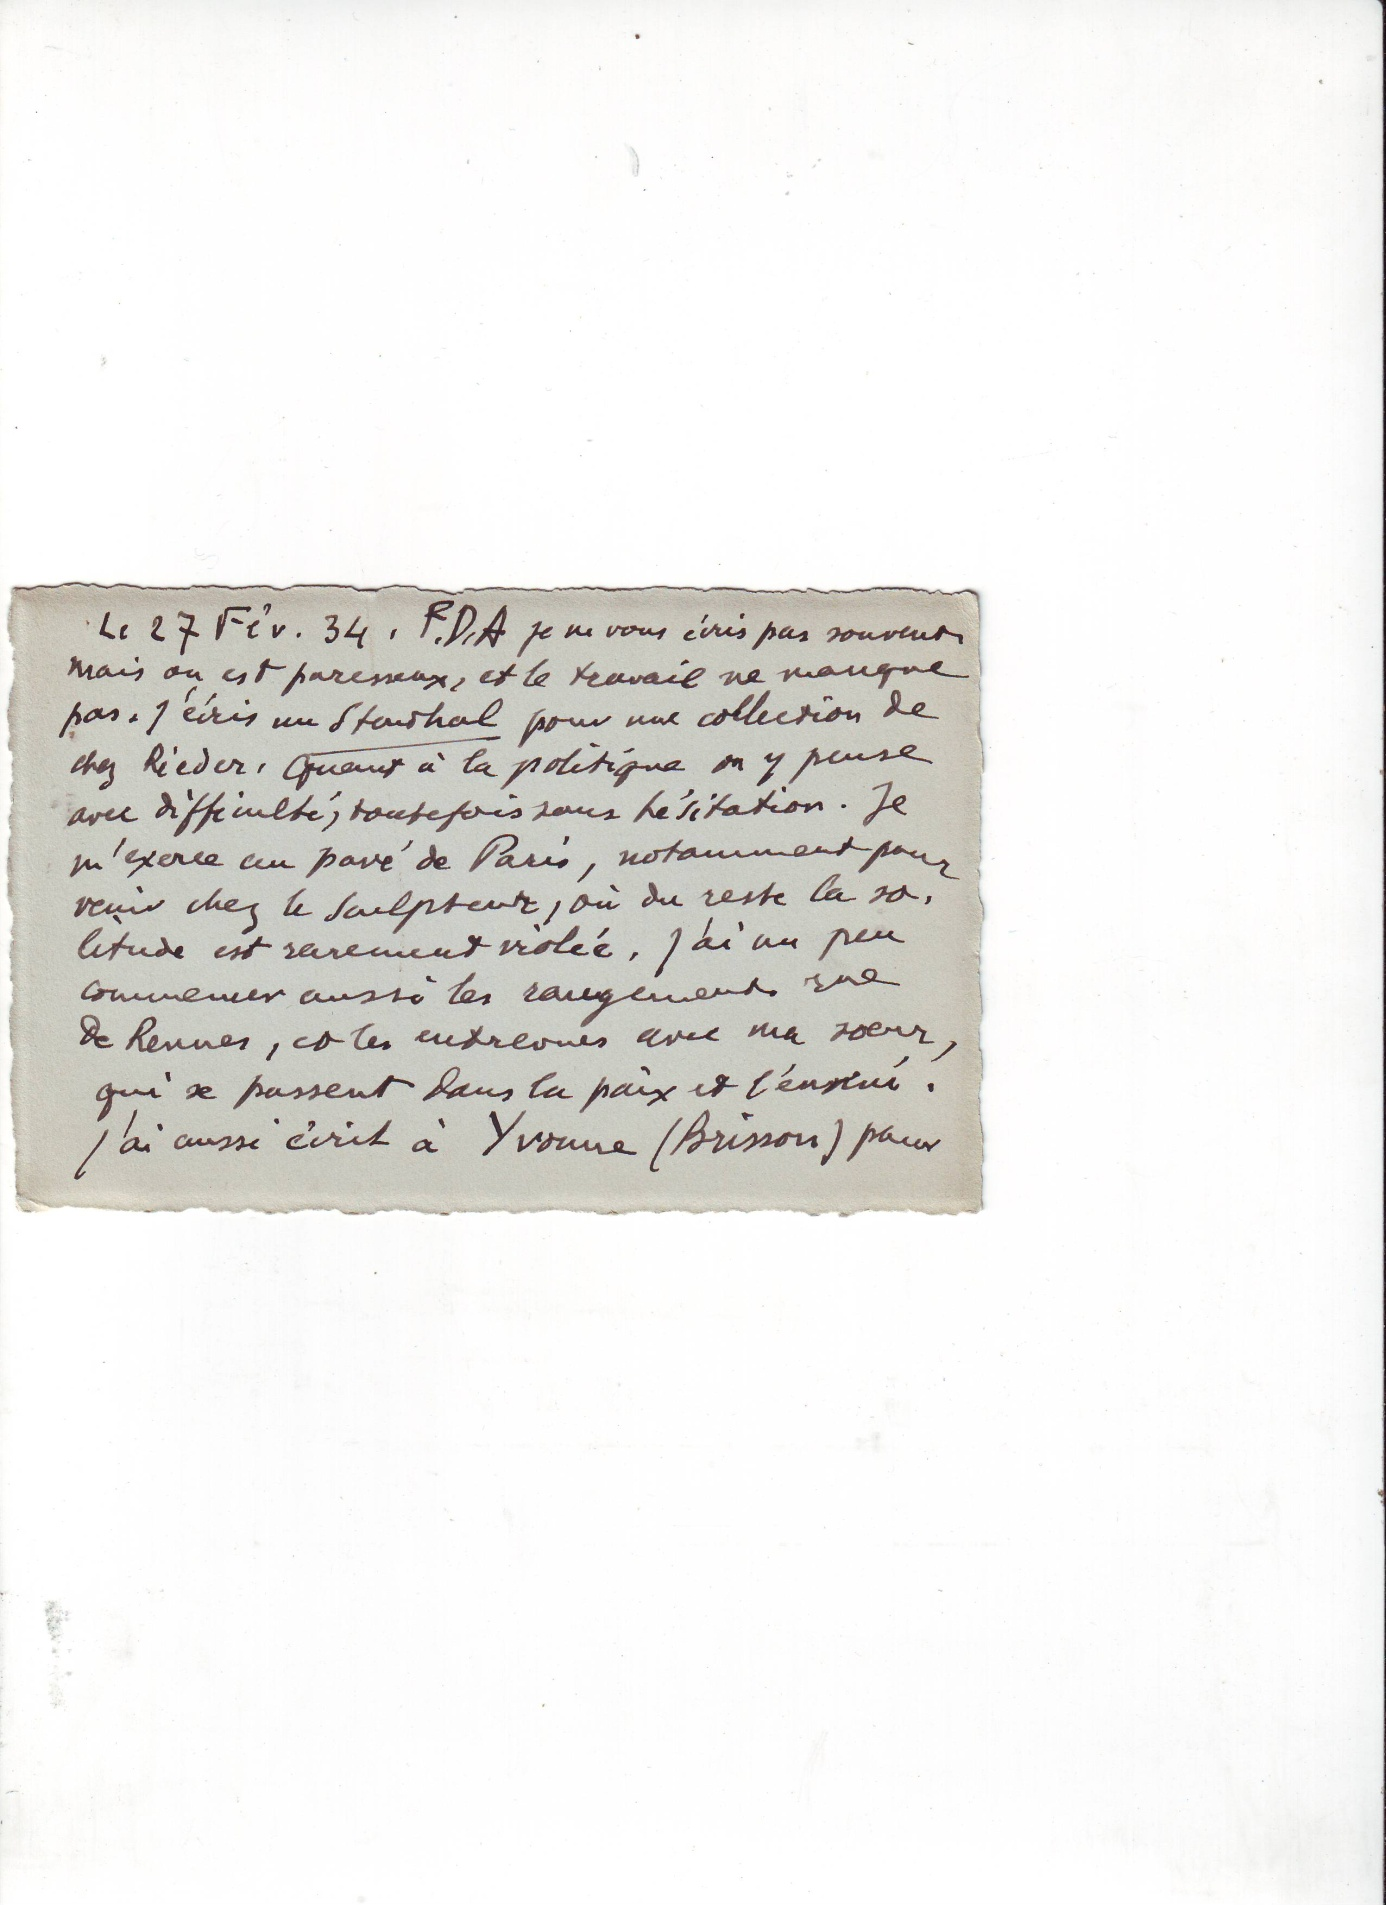 Le 27 Fév. 34. F.D.A je ne vous écris pas souvent
mais on est paresseux, et le travail ne manque
pas. J'écris un Stendhal pour une collection de
chez Rieder. Quant à la politique on y pense
avec difficulté, toutefois sans hésitation. Je
m'exerce au pavé de Paris, notamment pour
venir chez le Sculpteur, où du reste la so-
litude est rarement violée. J'ai un peu
commencer aussi les rangements rue
de Rennes, et les entrevues avec ma soeur,
qui se passent dans la paix et l'ennui.
J'ai aussi écrit à Yvonne (Brisson) pour